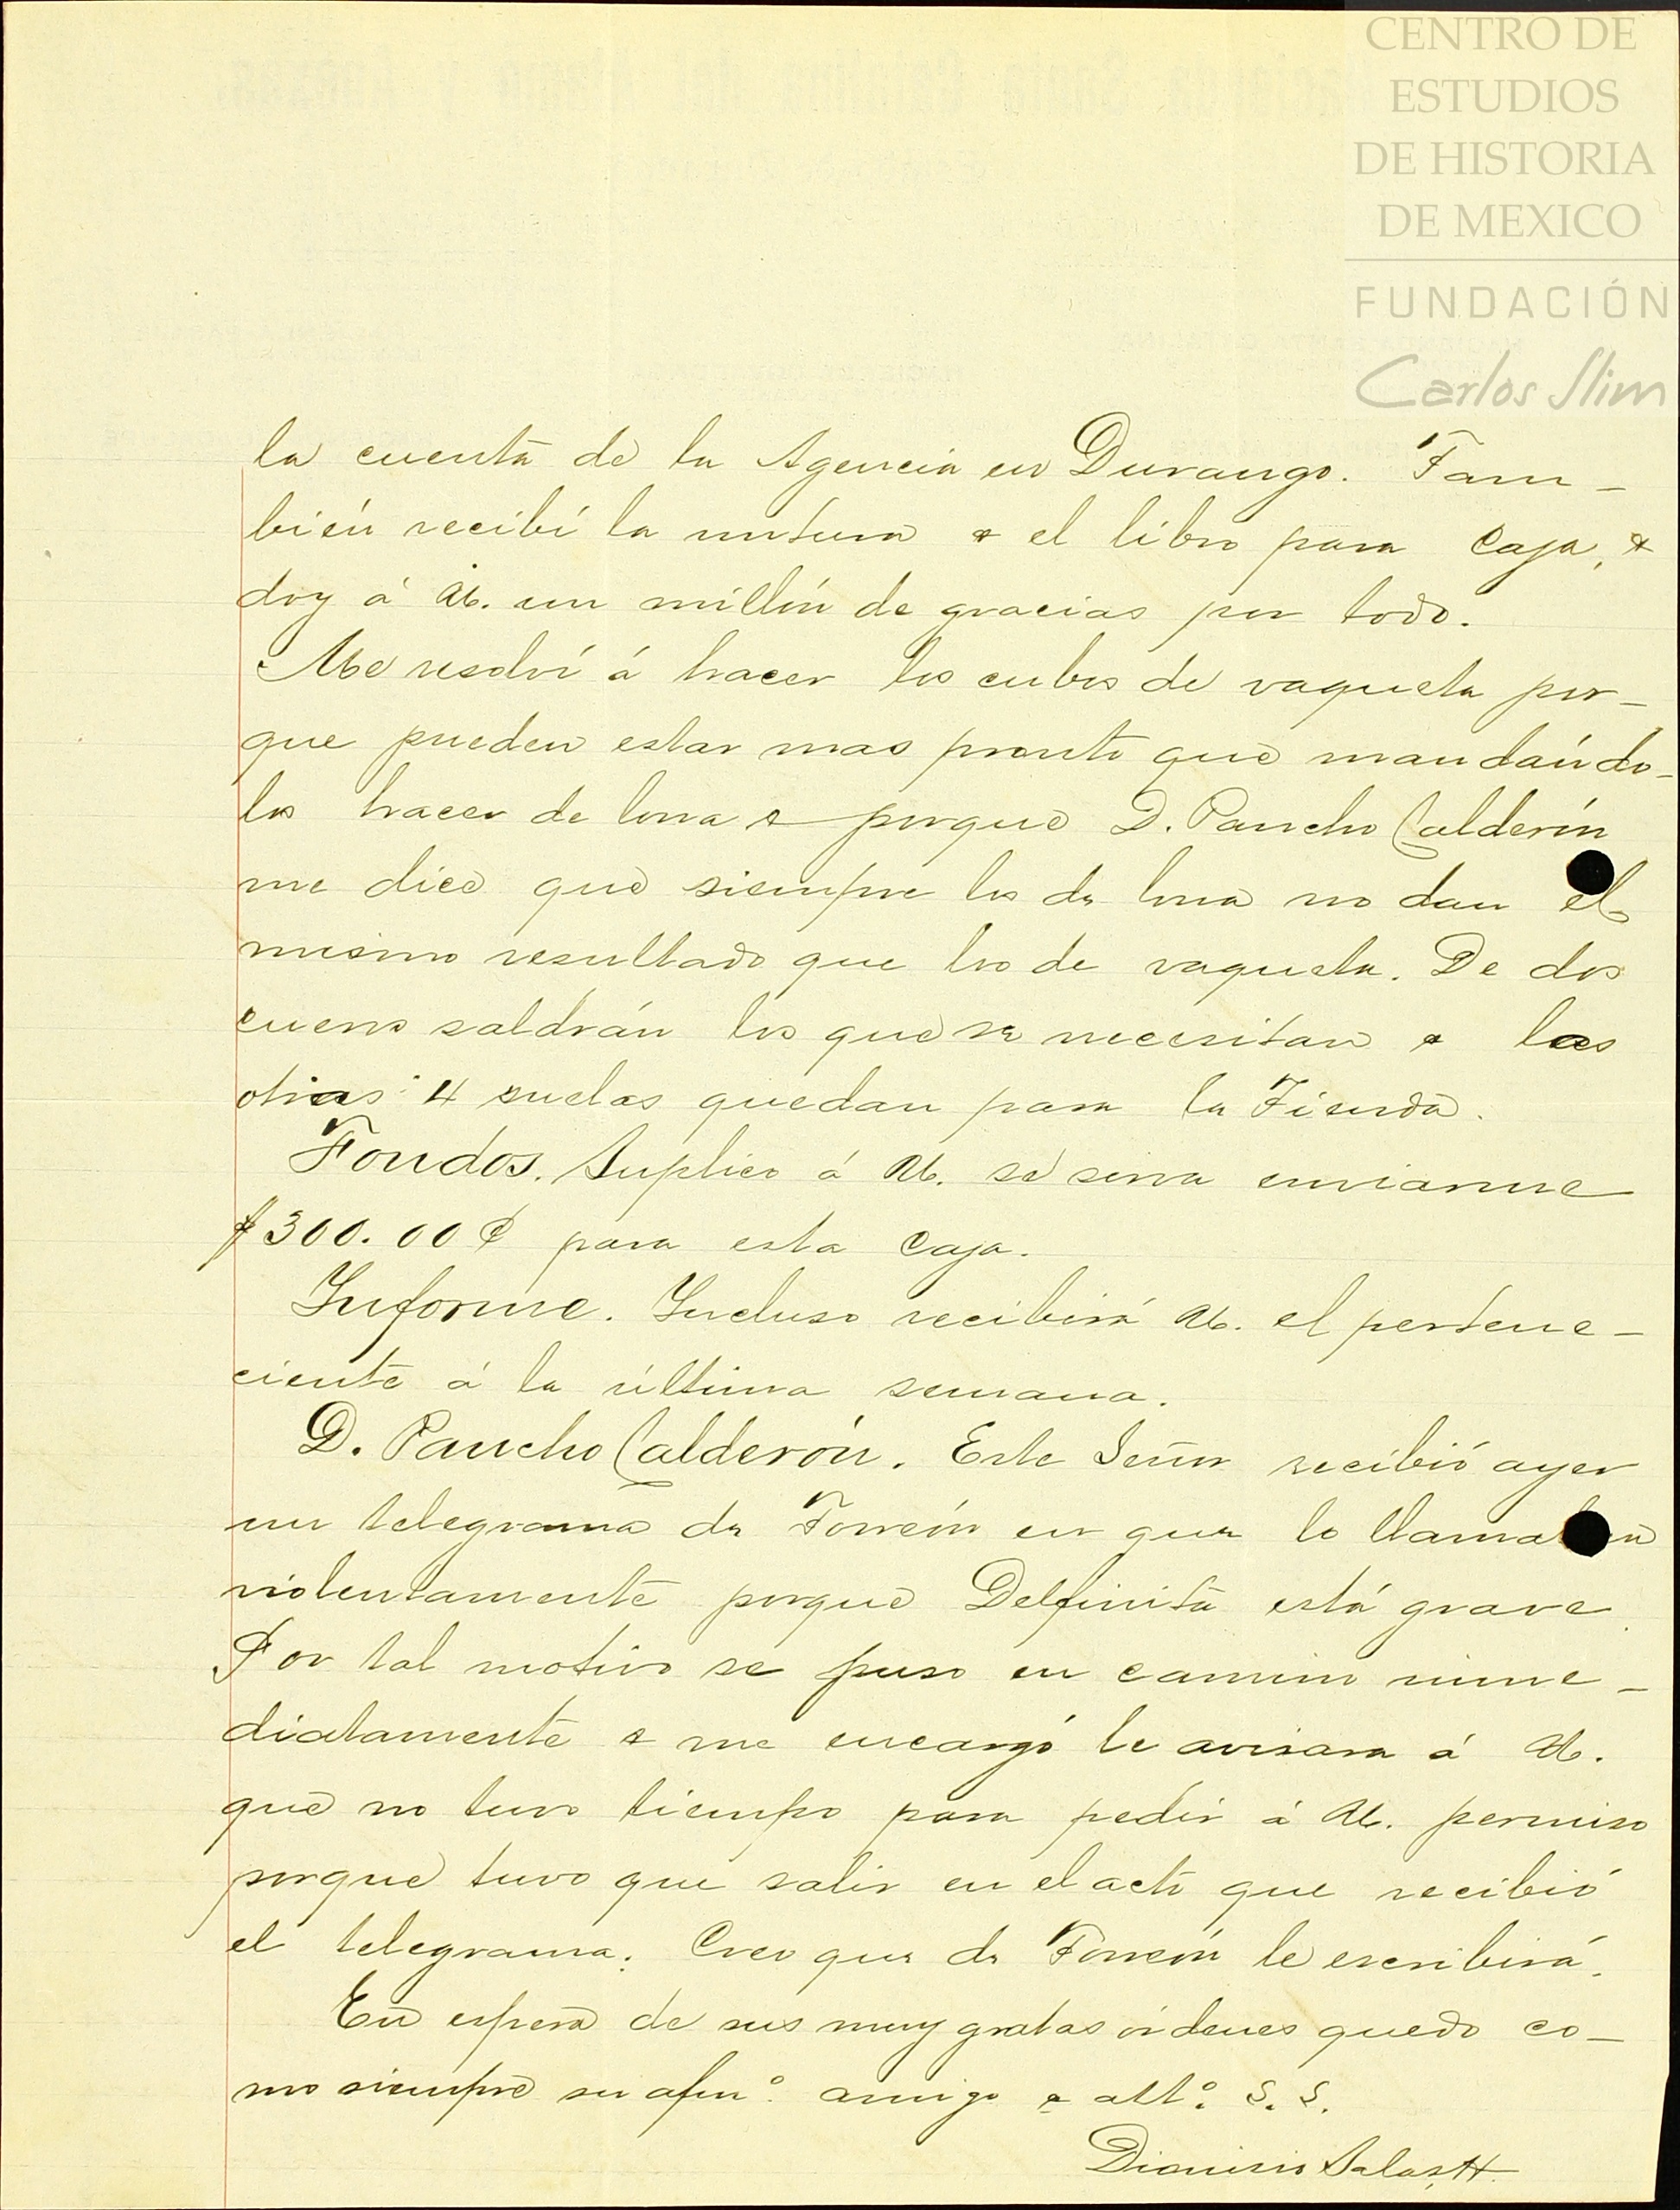 CENTRO DE
ESTUDIOS
DE HISTORIA
DE MEXICO
FUNDACIÓN
Carlos Slim
la cuenta de la Agencia en Durango. Tam-
bién recibí la untura & el libro para Caja, &
doy á U. un millón de gracias por todo.
Me resolví á hacer los cubos de vaqueta por-
que pueden estar mas pronto que mandándo-
los hacer de lona & porque D. Pancho Calderón
me dice que siempre los de lona no dan el
mismo resultado que los de vaqueta. De dos
cueros saldrán los que se necesitan & las
otras 4 suelas quedan para la Tienda.
Fondos. Suplico á U. se sirva enviarme
$300.00¢ para esta Caja.
Informe. Incluso recibirá U. el pertene-
ciente á la última semana.
D. Pancho Calderón. Este Señor recibió ayer
un telegrama de Torreón en que lo llamaban
violentamente porque Delfinita está grave.
Por tal motivo se puso en camino inme-
diatamente & me encargó le avisara á U.
que no tuvo tiempo para pedir á U. permiso
porque tuvo que salir en el acto que recibió
el telegrama. Creo que de Torreón le escribirá.
En espera de sus muy gratas órdenes quedo co-
mo siempre su afmo. amigo & atto. S. S.
Dionisio Salas, H.